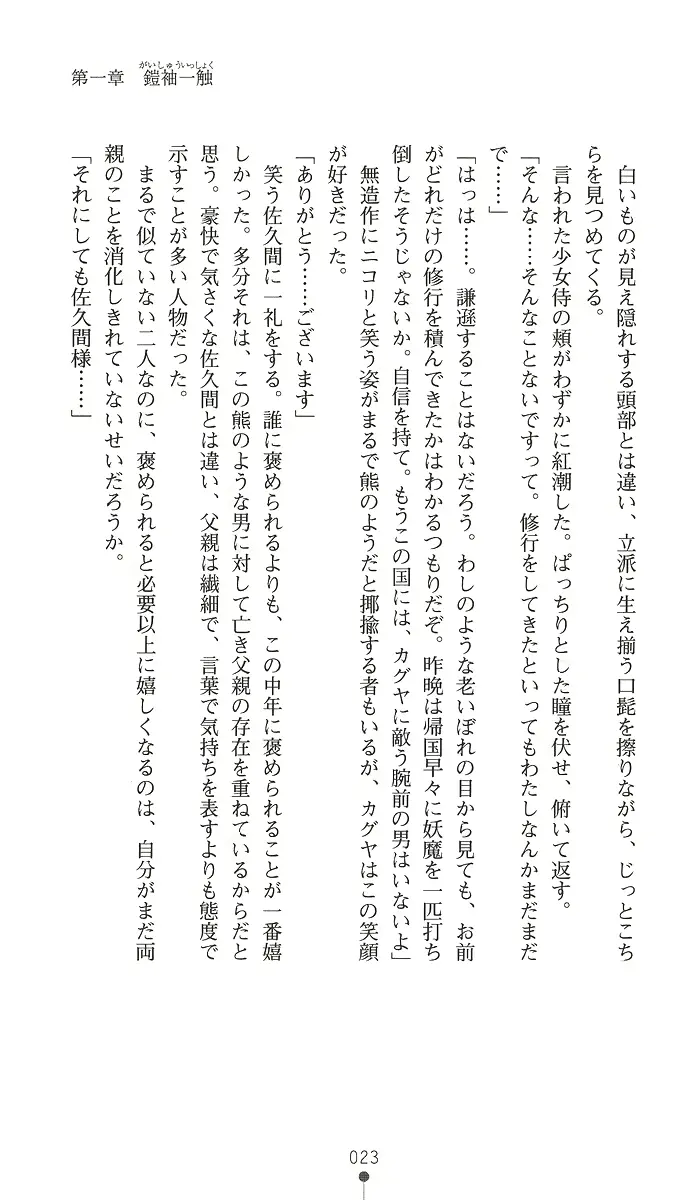 第一章　鎧袖一触
がいしゅういっしょく
白いものが見え隠れする頭部とは違い、立派に生え揃う口髭を擦りながら、じっとこち
らを見つめてくる。
言われた少女侍の頬がわずかに紅潮した。ぱっちりとした瞳を伏せ、俯いて返す。
「そんな……そんなことないですって。修行をしてきたといってもわたしなんかまだまだ
で……」
「はっは……。謙遜することはないだろう。わしのような老いぼれの目から見ても、お前
がどれだけの修行を積んできたかはわかるつもりだぞ。昨晩は帰国早々に妖魔を一匹打ち
倒したそうじゃないか。自信を持て。もうこの国には、カグヤに敵う腕前の男はいないよ」
無造作にニコリと笑う姿がまるで熊のようだと揶揄する者もいるが、カグヤはこの笑顔
が好きだった。
「ありがとう……ございます」
笑う佐久間に一礼をする。誰に褒められるよりも、この中年に褒められることが一番嬉
しかった。多分それは、この熊のような男に対して亡き父親の存在を重ねているからだと
思う。豪快で気さくな佐久間とは違い、父親は繊細で、言葉で気持ちを表すよりも態度で
示すことが多い人物だった。
まるで似ていない二人なのに、褒められると必要以上に嬉しくなるのは、自分がまだ両
親のことを消化しきれていないせいだろうか。
「それにしても佐久間様……」
023